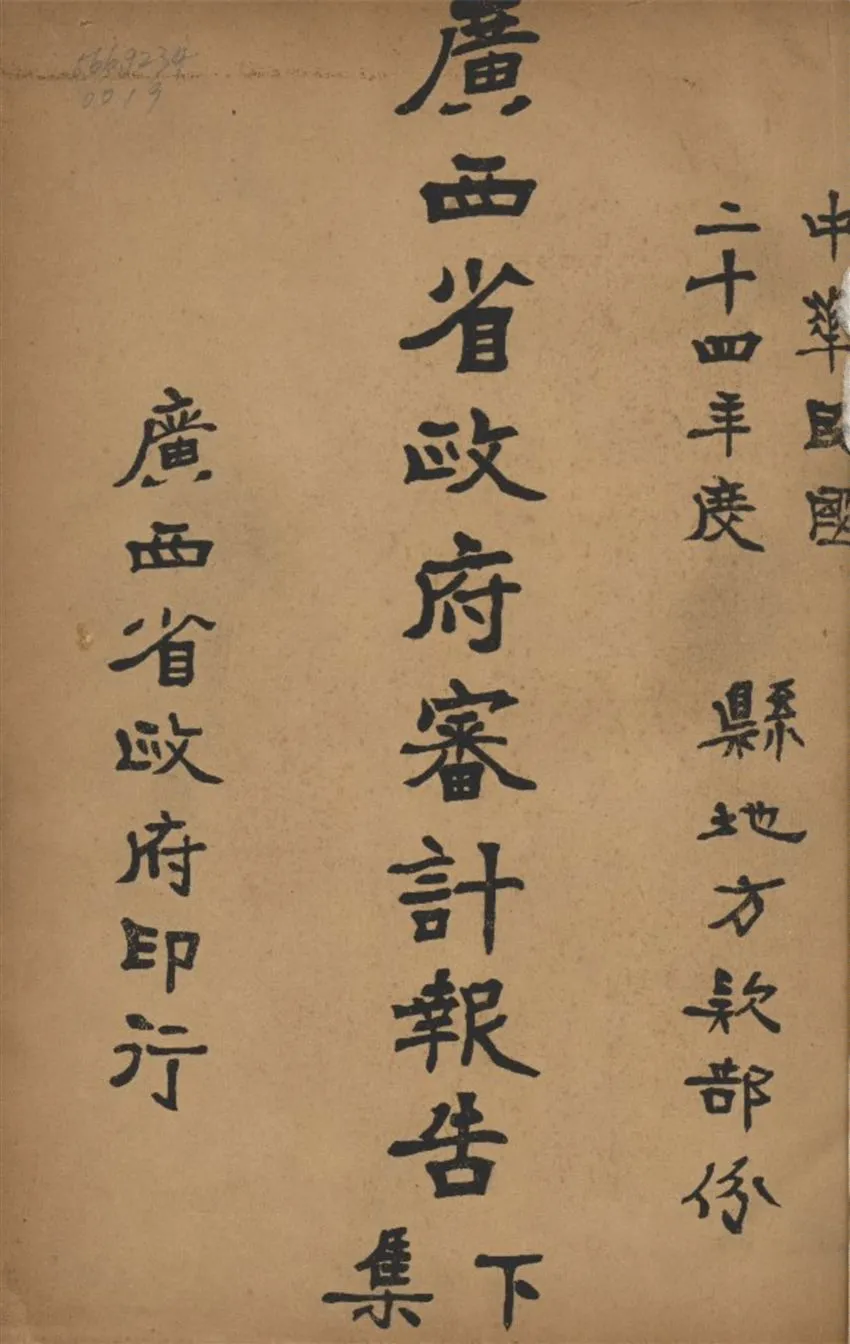 中華民國
二十四年度
縣地方款部份
廣西省政府審計報告
下集
廣西省政府印行
5669234
0019